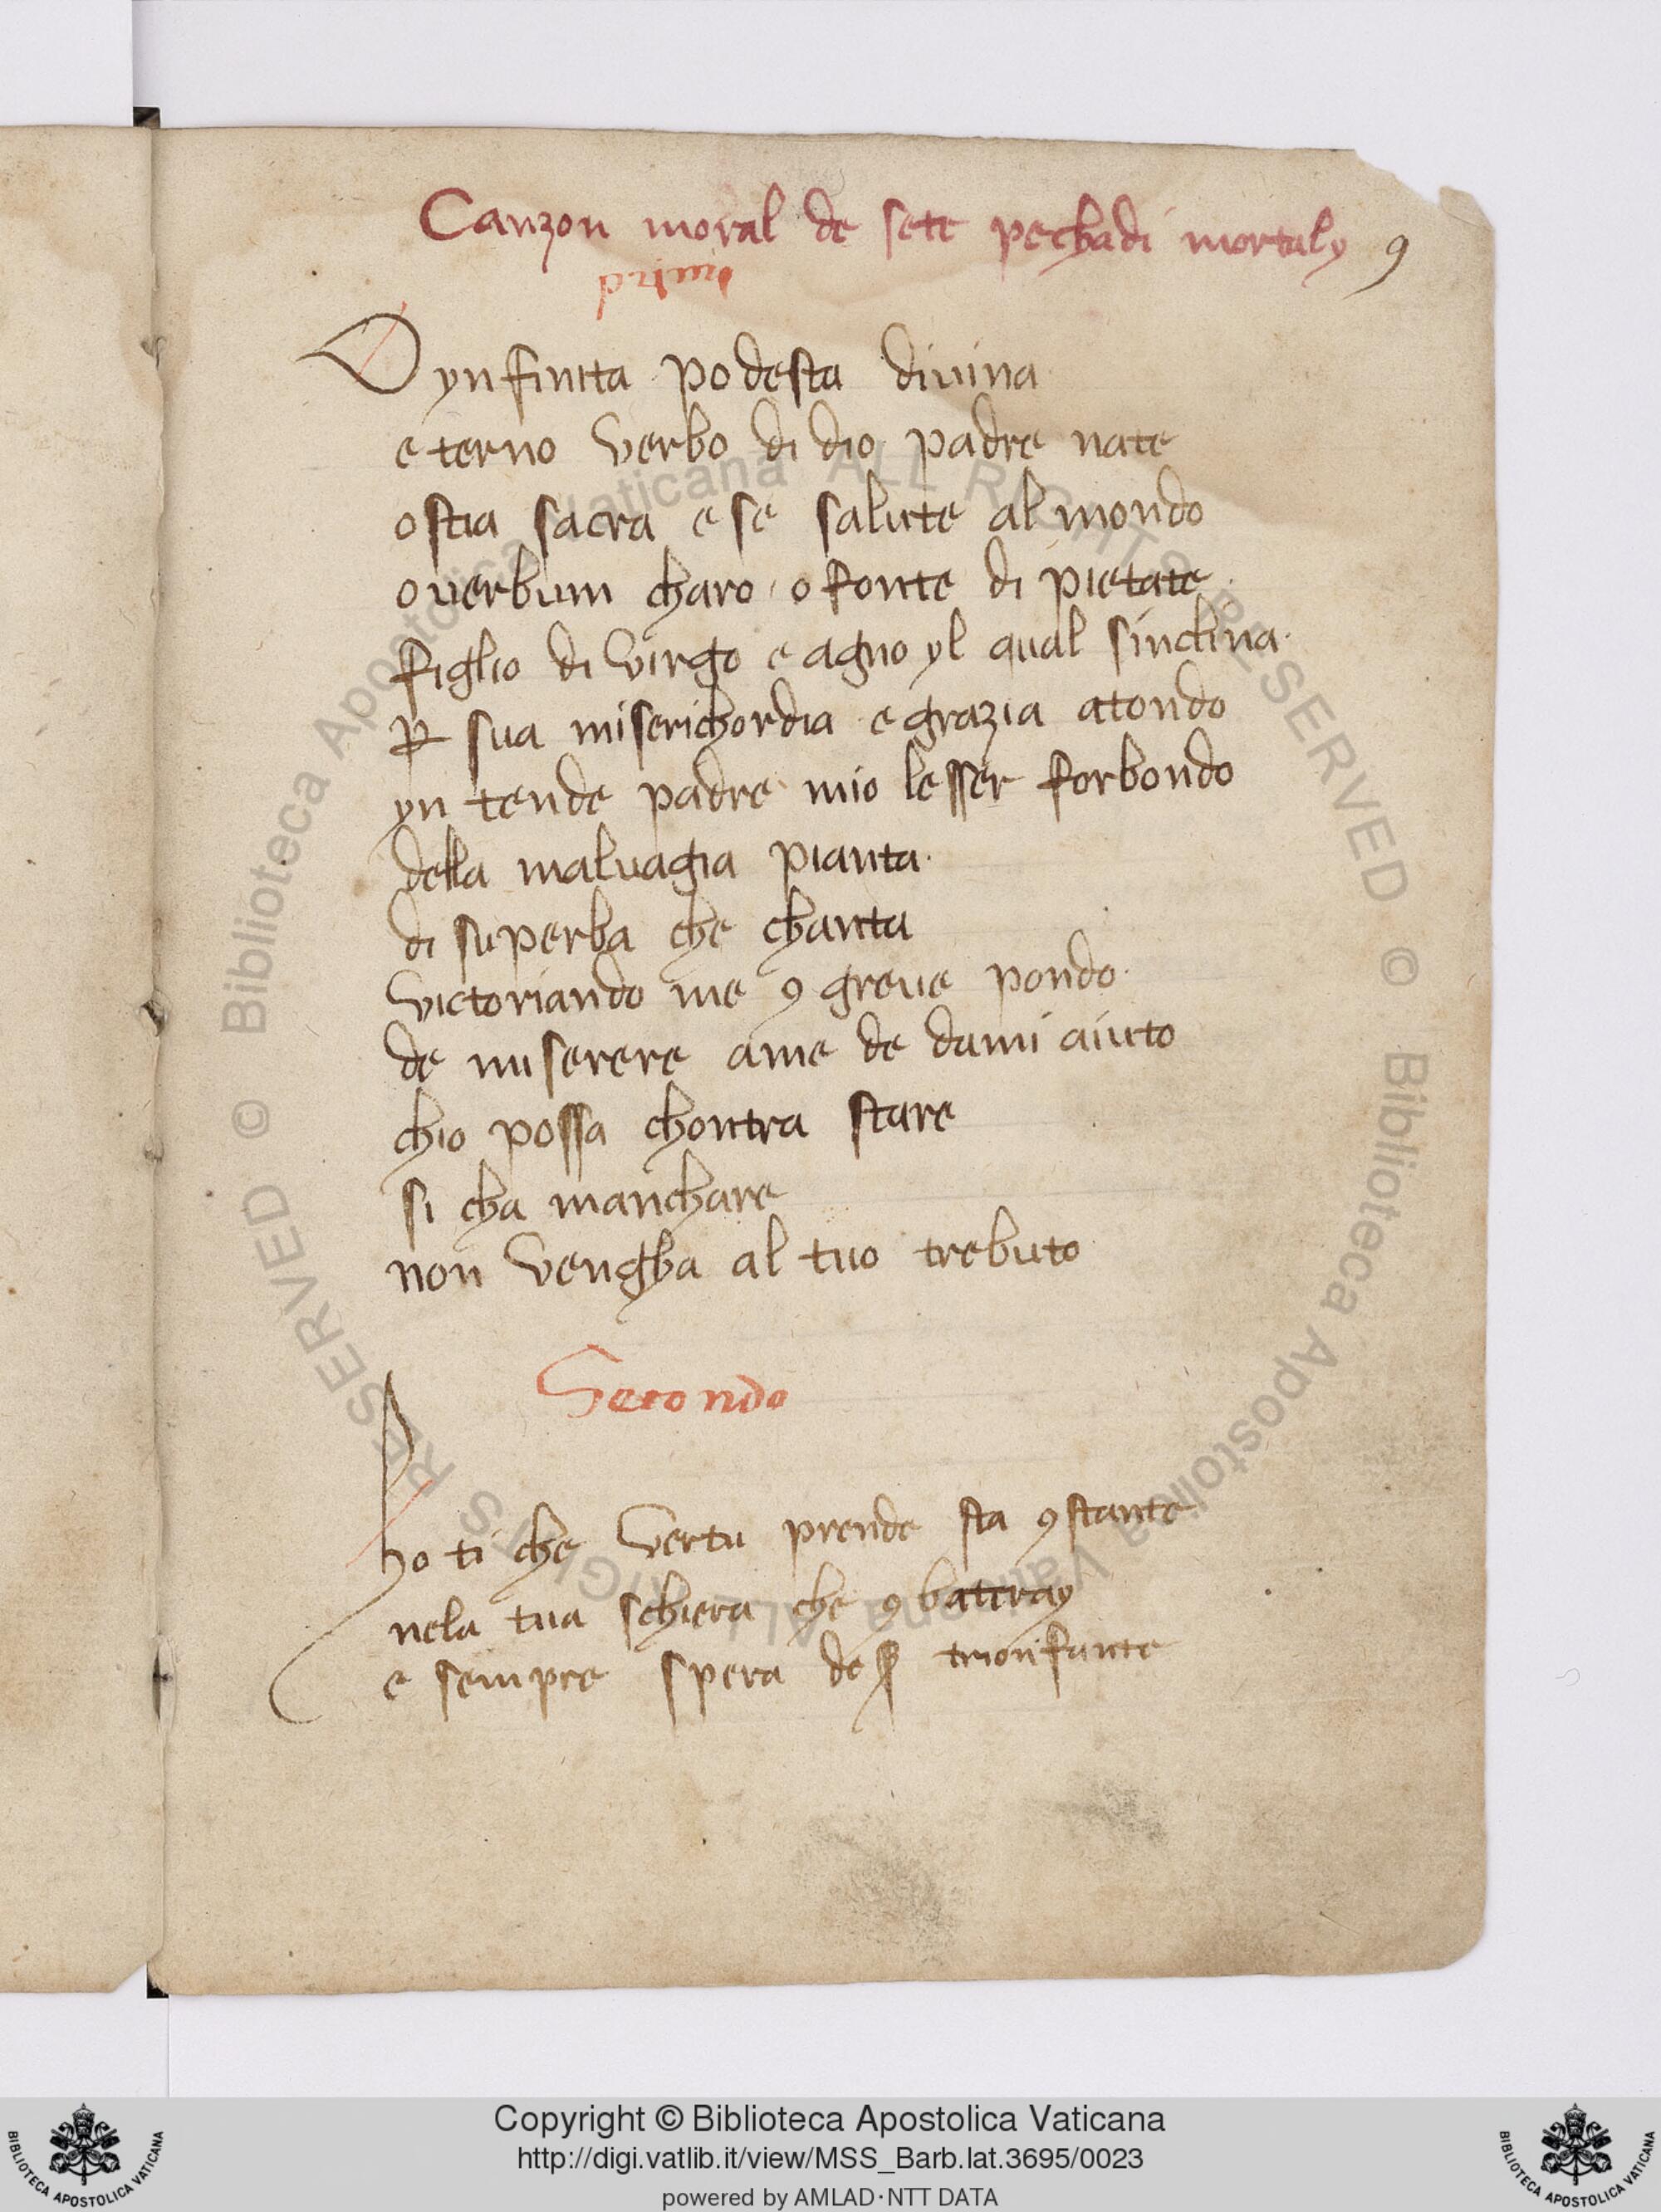 Canzon moral de sete pechadi mortaly 9
O ynfinita podesta diuina
eterno verbo di dio padre nate
ostia sacra e se salute al mondo
o uerbum charo o fonte di pietate
figlio di virgo e agno yl qual sinclina
ꝑ sua miserichordia e grazia atondo
yn tende padre mio lesser forbondo
della maluagia pianta
di superba che chanta
victoriando me ꝯ greue pondo
de miserere ame de dami aiuto
chio possa chontra stare
si cha manchare
non vengha al tuo trebuto
Secondo
ho ti che vertu prende sta ꝯstante
nela tua schiera che ꝯbateray
e sempre spera de trionfante
© Biblioteca Apostolica Vaticana ALL RIGHTS RESERVED
© Biblioteca Apostolica Vaticana ALL RIGHTS RESERVED
Copyright © Biblioteca Apostolica Vaticana
http://digi.vatlib.it/view/MSS_Barb.lat.3695/0023
powered by AMLAD·NTT DATA
BIBLIOTECA APOSTOLICA VATICANA
BIBLIOTECA APOSTOLICA VATICANA